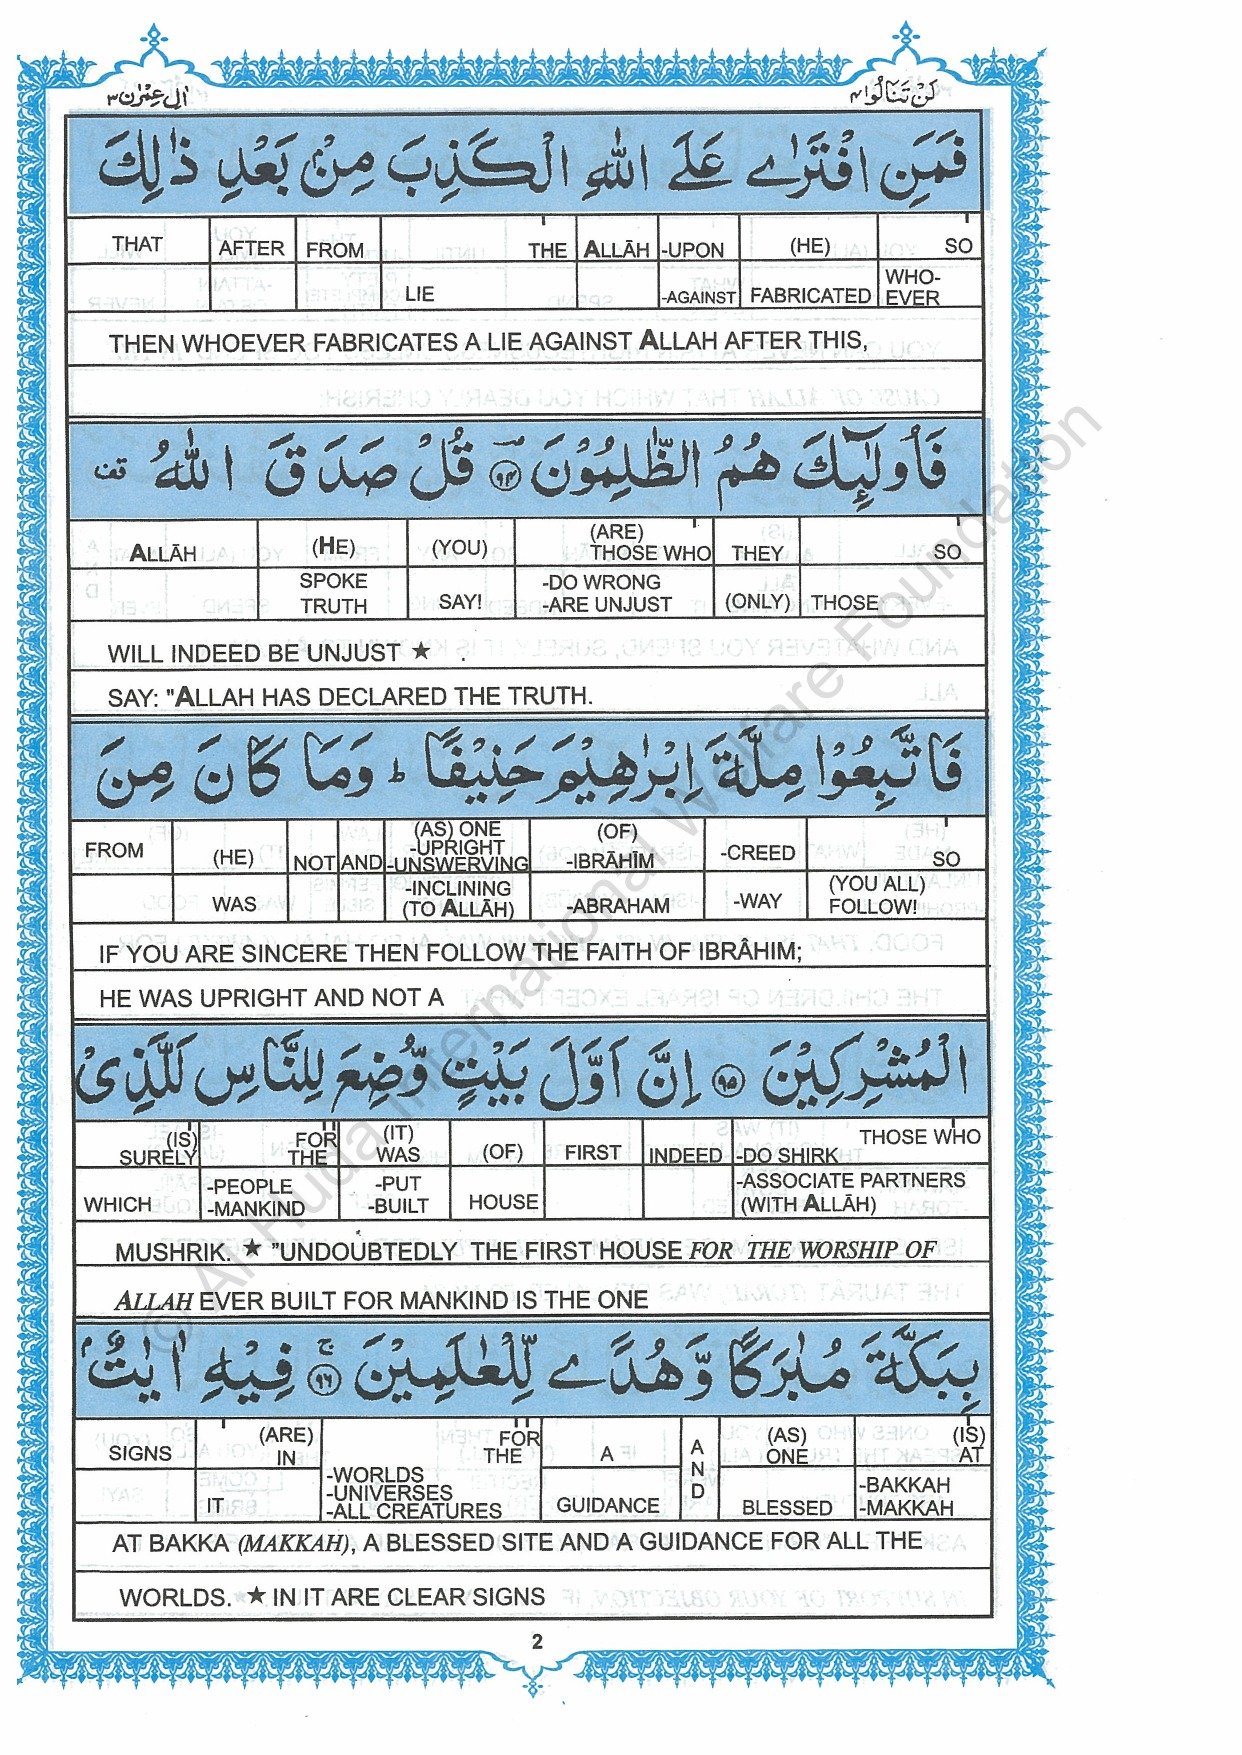 اٰل عِمْرٰن ٣ لَنْ تَنَالُوا ٤
فَمَنِ افْتَرٰى عَلَى اللّٰهِ الْكَذِبَ مِنْۢ بَعْدِ ذٰلِكَ
THAT AFTER FROM THE ALLĀH -UPON (HE) SO
LIE -AGAINST FABRICATED WHO-EVER
THEN WHOEVER FABRICATES A LIE AGAINST ALLAH AFTER THIS,
فَاُولٰٓئِكَ هُمُ الظّٰلِمُوْنَ ۝٩٤ قُلْ صَدَقَ اللّٰهُ قف
ALLĀH (HE) (YOU) (ARE) THOSE WHO THEY SO
SPOKE TRUTH SAY! -DO WRONG -ARE UNJUST (ONLY) THOSE
WILL INDEED BE UNJUST ★ .
SAY: "ALLAH HAS DECLARED THE TRUTH.
فَاتَّبِعُوْا مِلَّةَ اِبْرٰهِيْمَ حَنِيْفًا ؕ وَمَا كَانَ مِنَ
FROM (HE) NOT AND (AS) ONE -UPRIGHT -UNSWERVING (OF) -IBRĀHĪM -CREED SO
WAS -INCLINING (TO ALLĀH) -ABRAHAM -WAY (YOU ALL) FOLLOW!
IF YOU ARE SINCERE THEN FOLLOW THE FAITH OF IBRÂHIM;
HE WAS UPRIGHT AND NOT A
الْمُشْرِكِيْنَ ۝٩٥ اِنَّ اَوَّلَ بَيْتٍ وُّضِعَ لِلنَّاسِ لَلَّذِىْ
(IS) SURELY FOR THE (IT) WAS (OF) FIRST INDEED THOSE WHO -DO SHIRK
WHICH -PEOPLE -MANKIND -PUT -BUILT HOUSE -ASSOCIATE PARTNERS (WITH ALLĀH)
MUSHRIK. ★ "UNDOUBTEDLY THE FIRST HOUSE FOR THE WORSHIP OF
ALLAH EVER BUILT FOR MANKIND IS THE ONE
بِبَكَّةَ مُبٰرَكًا وَّهُدًى لِّلْعٰلَمِيْنَ ۝٩٦ ۚ فِيْهِ اٰيٰتٌۢ
SIGNS (ARE) IN FOR THE A AND (AS) ONE (IS) AT
IT -WORLDS -UNIVERSES -ALL CREATURES GUIDANCE BLESSED -BAKKAH -MAKKAH
AT BAKKA (MAKKAH), A BLESSED SITE AND A GUIDANCE FOR ALL THE
WORLDS. ★ IN IT ARE CLEAR SIGNS
2
© Al Huda International Welfare Foundation